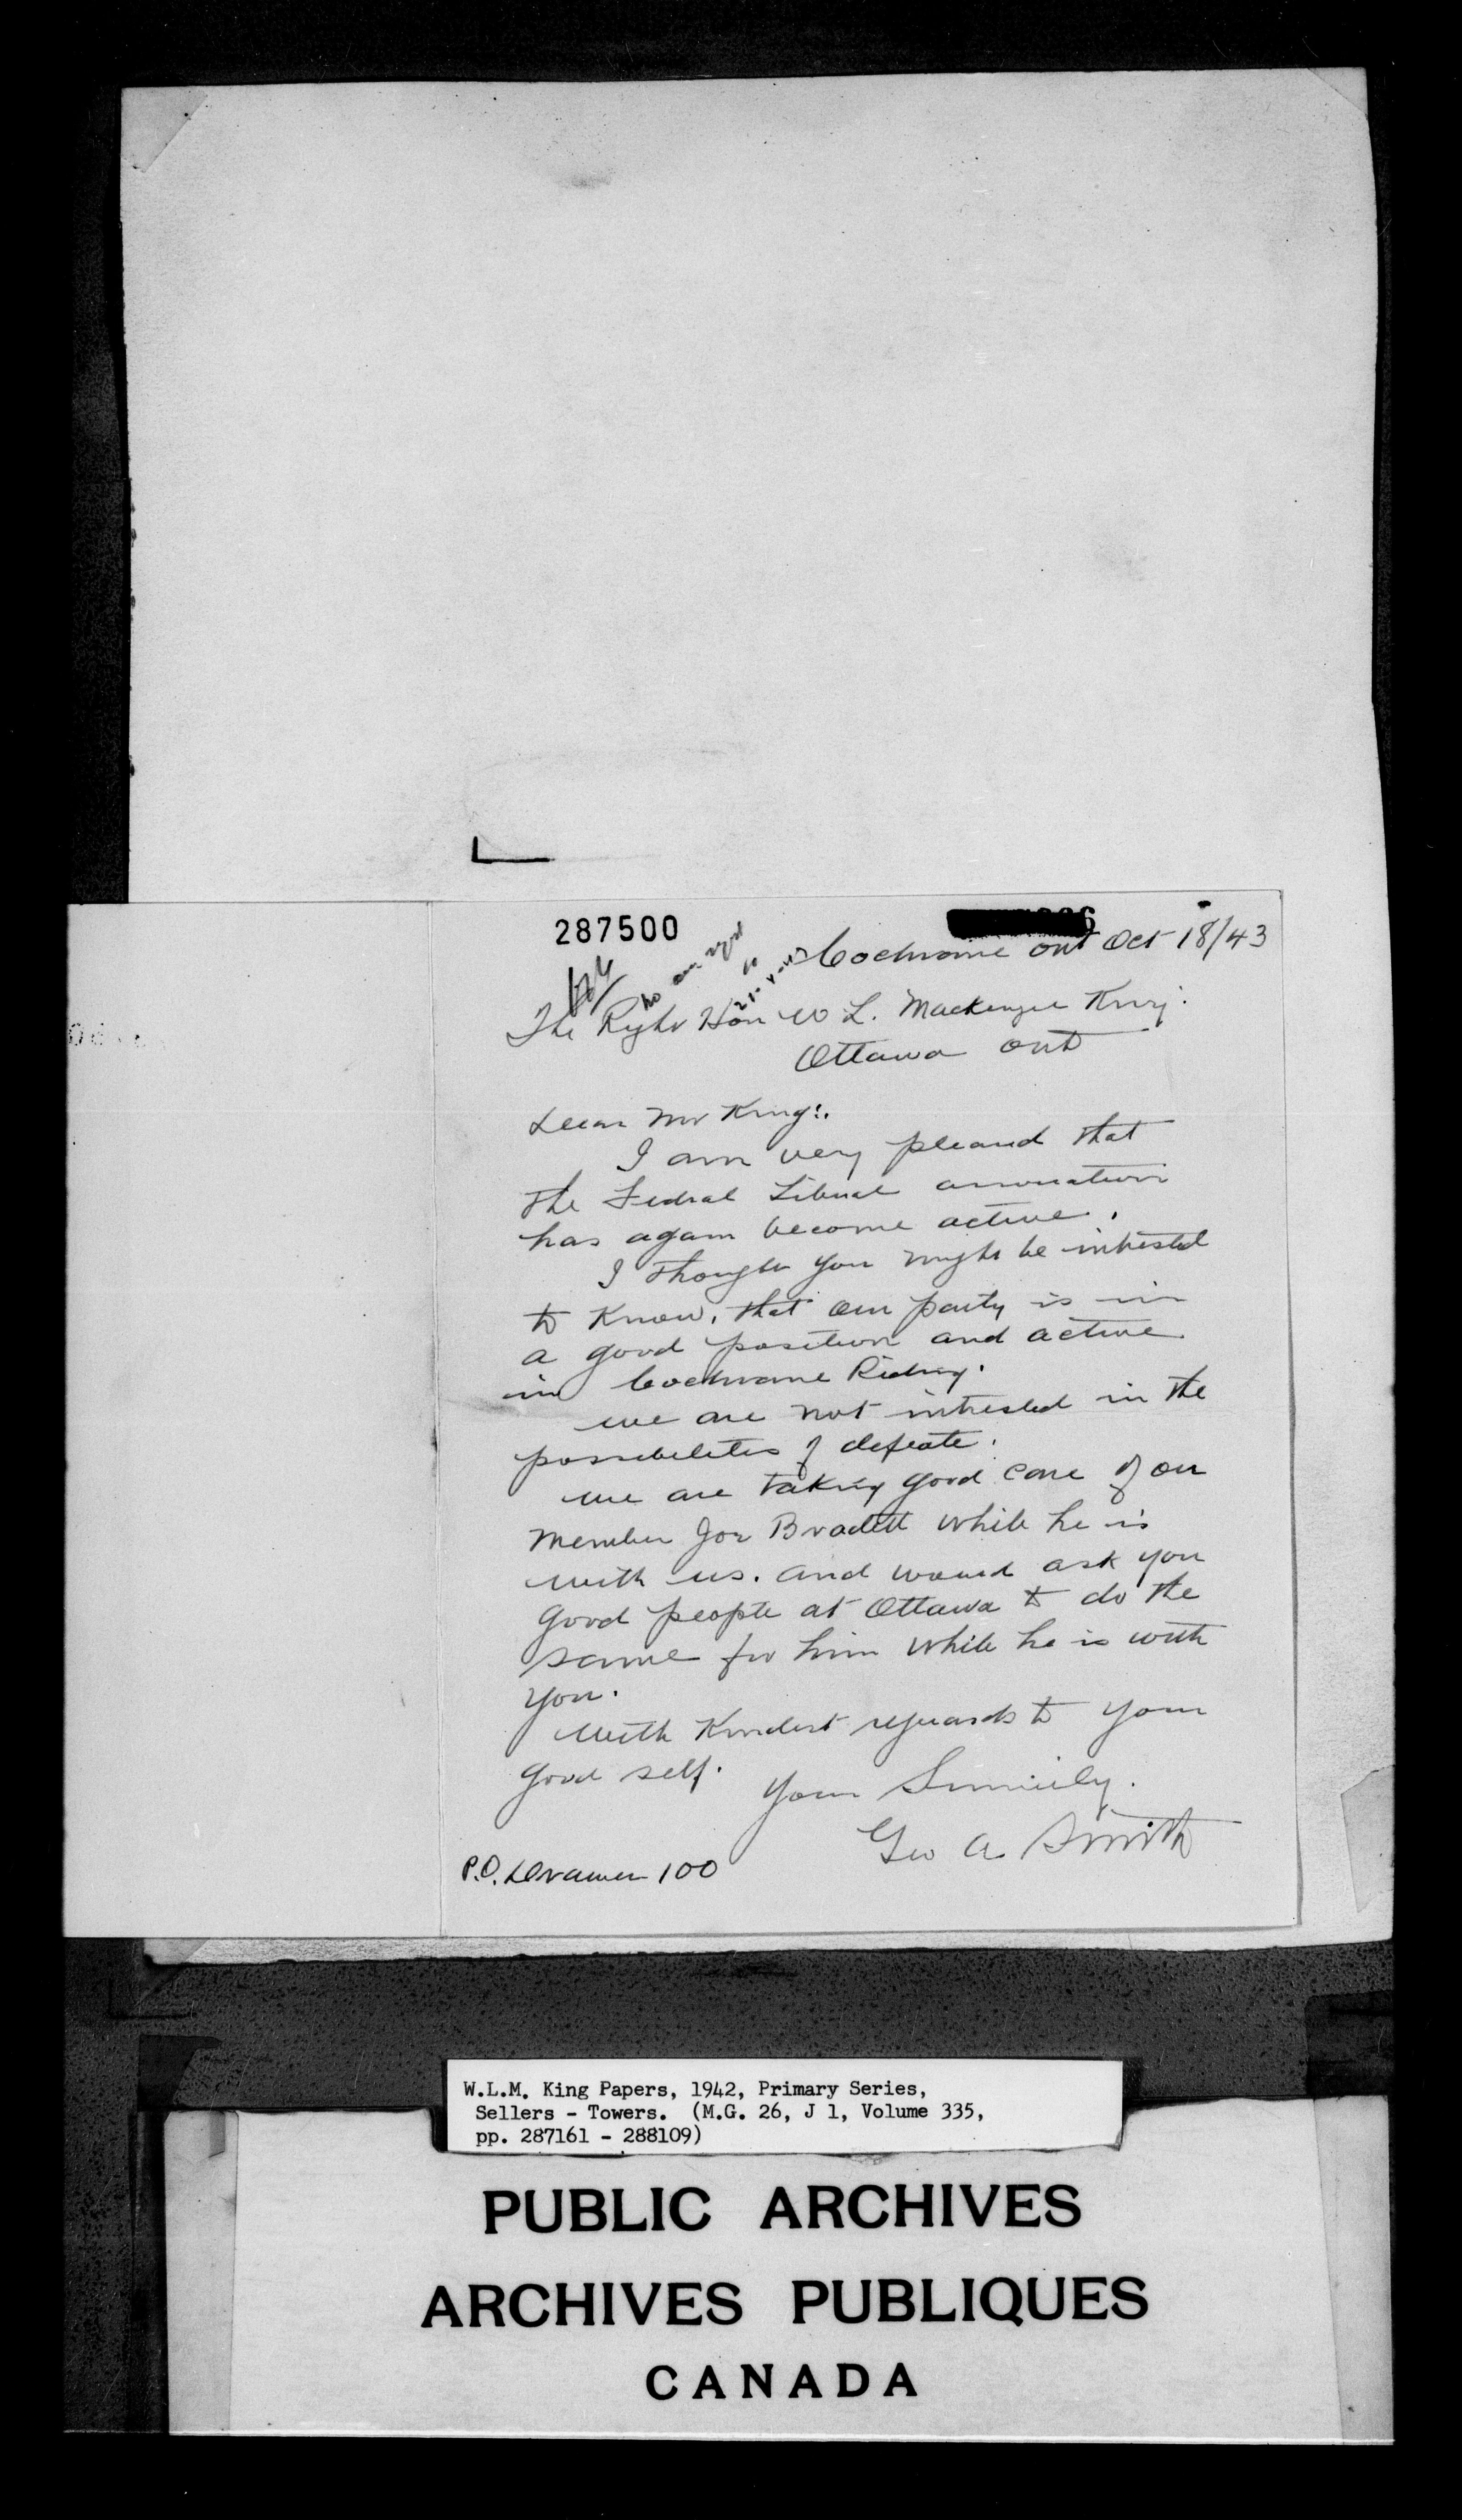 287500
Cochrane Ont Oct 18/43
The Right Hon W L. Mackenzie King.
Ottawa Ont
Dear Mr King:
I am very pleased that
the Fedral Liberal association
has again become active.
I thought you might be intrested
to Know, that our party is in
a good position and active
in Cochrane Riding.
we are not intrested in the
possibeletes of defeate.
we are taking good care of our
member Joe Bradett while he is
with us. and would ask you
good people at Ottawa to do the
same for him while he is with
you.
with Kindest reguards to your
good self.
Yours Sincerely.
Geo A. Smith
P.O. Drawer 100
W.L.M. King Papers, 1942, Primary Series,
Sellers - Towers. (M.G. 26, J 1, Volume 335,
pp. 287161 - 288109)
PUBLIC ARCHIVES
ARCHIVES PUBLIQUES
CANADA